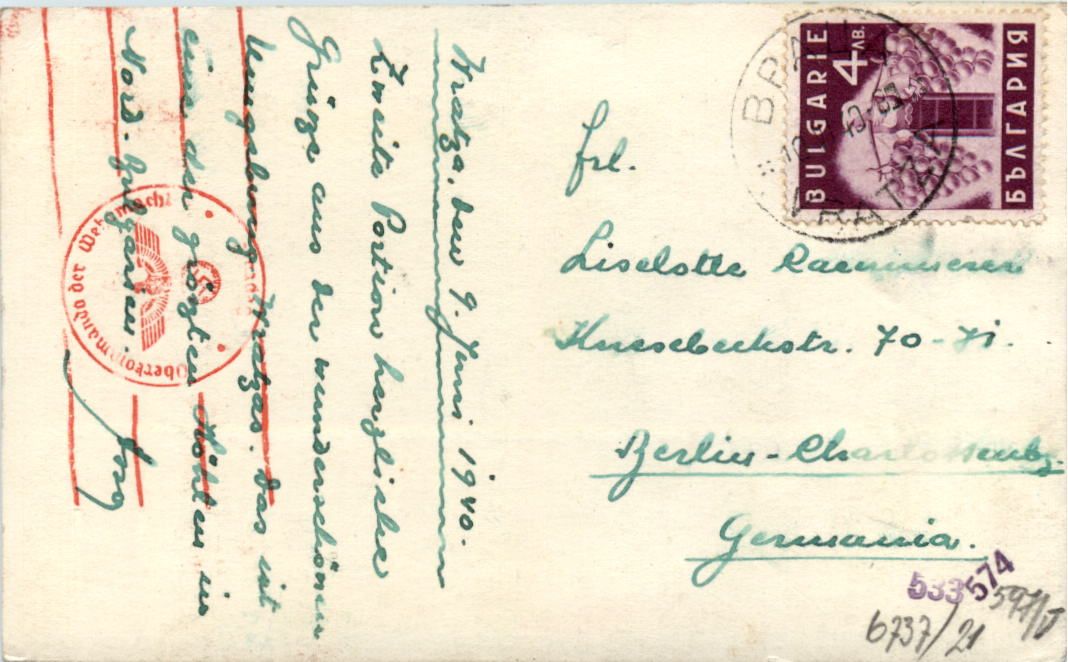 Wratza, den 9. Juni 1940.
Zweite Portion herzliche
Grüsse aus der wunderschönen
Umgebung Wratzas. Das ist
eine der grözten Höhlen in
Nord. Bulgarien.
Oberkommando der Wehrmacht
BULGARIE
4 ЛВ.
БЪЛГАРИЯ
ВРАЦА
VRATZA
Frl.
Liselotte
70-71.
Berlin-Charlottenbg.
Germania.
533574
597/V
6737/21